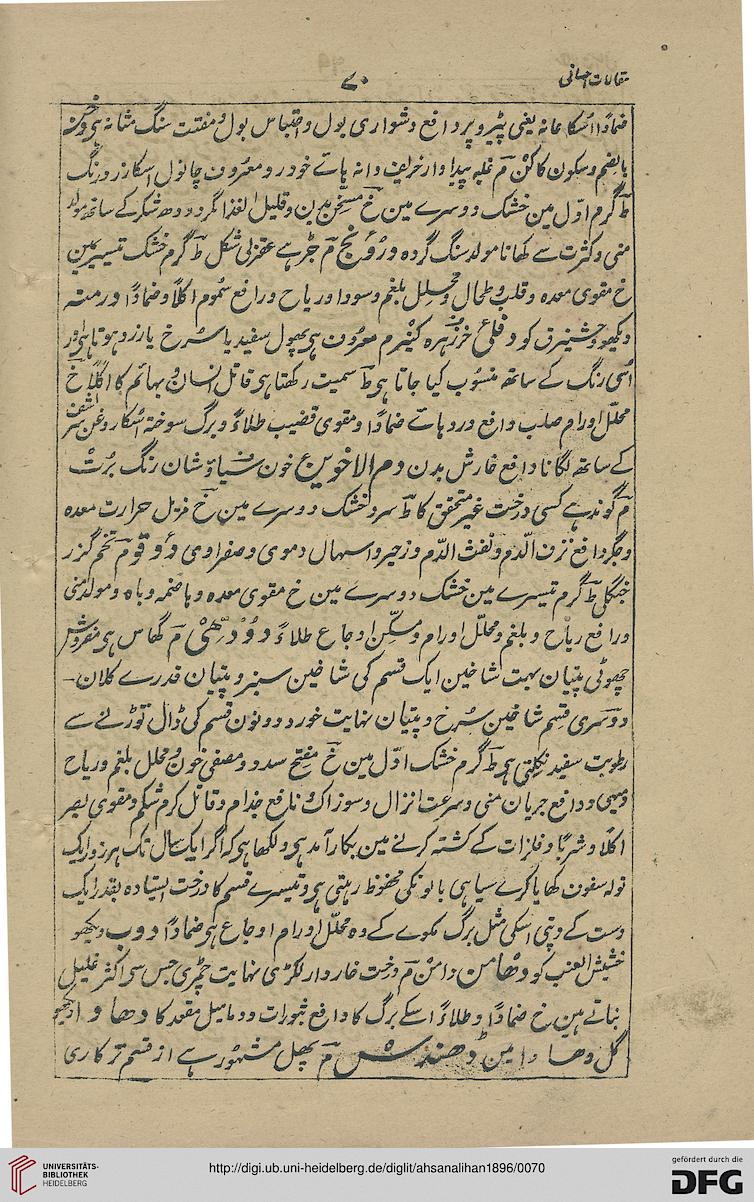 مقالات احسانی
۷۰
ضماداً اسکا عانہ یعنی پیڑو پر دافع دشواری بول و احتباس بول و مفتت سنگ مثانہ ہی
بالضم وسکون کاف م غلہ پیداوار خریف دانہ ہائے خورد و معروف چانول اسکا زرد رنگ
ط گرم اول مین خشک دوسرے مین خ مسخن بدن و قلیل الغذا مگر دودھ شکر کے ساتھ مولد
منی و کثرت سے کھانا مولد سنگ گردہ درونج م جڑ ہے عقربی شکل ط گرم خشک تیسرے مین
خ مقوی معدہ و قلب و طحال و محلل بلغم و سودا و ریاح و رافع سموم اکلاً و ضماداً درمنہ
دیکھو شیترق کو دفلی خرزہرہ کنیر م معروف ہی پھول سفید یا سرخ یا زرد ہوتا ہی اور
اسی رنگ کے ساتھ منسوب کیا جاتا ہی ط سمیت رکھتا ہی قاتل انسان و بہائم کا اکلاً خ
محلل اورام صلب و افع درد ہائے ضماداً و مقوی قضیب طلاءً و برگ سوختہ اسکا روغن
کے ساتھ لگانا دافع خارش بدن دم الاخوین ع خون سیاوشان رنگ برت
م گوند ہے کسی درخت غیر متحقق کا ط سرد و خشک دوسرے مین خ مزیل حرارت معدہ
و جگر دافع نزف الدم و نفث الدم و زحیر و اسہال دموی و صفراوی دوقو م تخم گزر
جنگلی ط گرم تیسرے مین خشک دوسرے مین خ مقوی معدہ و ہاضمہ و باہ و مولد منی
و رافع ریاح و بلغم و محلل اورام و مسکن اوجاع طلاءً دودھی م گھاس ہی مفروش
چھوٹی پتیان بہت شاخین ایک قسم کی شاخین سبز و پتیان قدرے کلان -
دوسری قسم شاخین سرخ و پتیان نہایت خورد دونون قسم کی ڈال توڑنے سے
رطوبت سفید نکلتی ہی ط گرم خشک اول مین خ مفتح سدد و مصفی خون و محلل بلغم و ریاح
و مبہی و دافع جریان منی و سرعت انزال و سوزاک و نافع جذام و قاتل کرم شکم و مقوی بصر
اکلاً و شرباً و فلزات کے کشتہ کرنے مین بکار آمد ہی و لکھا ہی کہ اگر ایک سال تک ہر روز ایک
تولہ سفوف کھایا کرے سیاہی بالونکی محفوظ رہتی ہی و تیسرے قسم کا درخت ایستادہ بقدر ایک
دست کے و پتی اسکی مثل برگ مکوے کے وہ محلل اورام و اوجاع ہی ضماداً دوب دیکھو
حشیش العنب کو دھامن دامن م درخت خاردار لکڑی نہایت چمڑی جس سی اکثر غلیل
بناتے ہین خ ضماداً و طلاءً اسکے برگ کا دافع بثورات و دمامیل مقعد کا دھاوا دیکھو
گل دھاوا مین دھندوش م پھل مشہور ہے از قسم ترکاری
UNIVERSITÄTS-
BIBLIOTHEK
HEIDELBERG
http://digi.ub.uni-heidelberg.de/diglit/ahsanalihan1896/0070
gefördert durch die
DFG